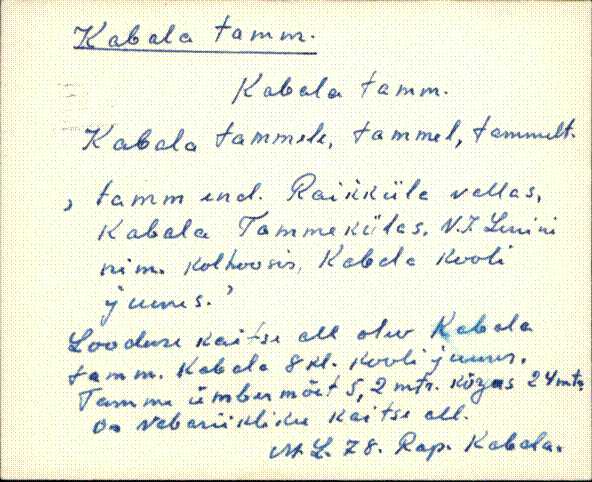 Kabala tamm.
Kabala tamm.
Kabala tammele, tammel, tammelt.
, tamm end. Raikküla vallas,
Kabala Tammekülas, V.I. Lenini
nim. kolhoosis, Kabala kooli
juures.’
Looduse kaitse all olev Kabala
tamm. Kabala 8 kl. kooli juures.
Tamme ümbermõet 5,2 mtr. kõrgus 24 mtr.
On vabariikliku kaitse all.
M.L. 78. Rap. Kabala.